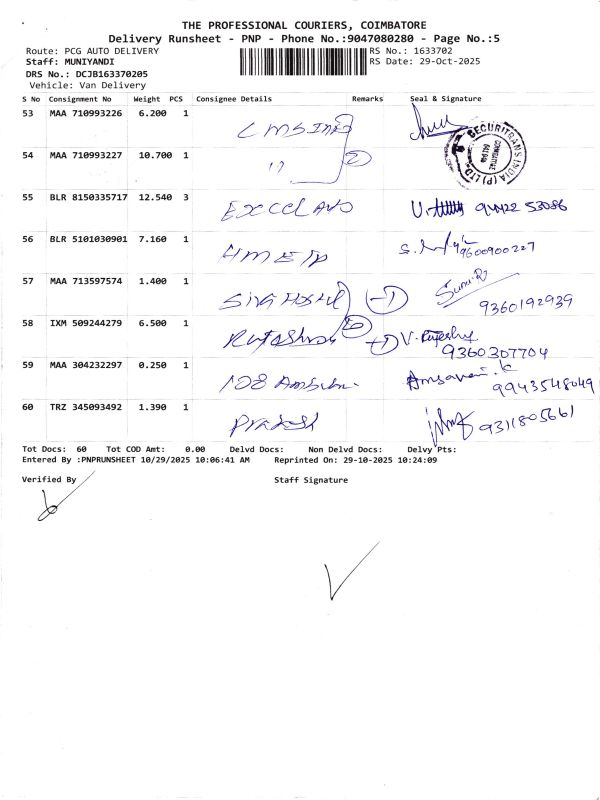 THE PROFESSIONAL COURIERS, COIMBATORE
Delivery Runsheet - PNP - Phone No.:9047080280 - Page No.:5
Route: PCG AUTO DELIVERY
RS No.: 1633702
Staff: MUNIYANDI
RS Date: 29-Oct-2025
DRS No.: DCJB163370205
Vehicle: Van Delivery
S No Consignment No Weight PCS Consignee Details Remarks Seal & Signature
53 MAA 710993226 6.200 1
SECURITRANS INDIA (P) LTD.
54 MAA 710993227 10.700 1 " 2
55 BLR 8150335717 12.540 3
56 BLR 5101030901 7.160 1 9600900227
57 MAA 713597574 1.400 1
9360192939
58 IXM 509244279 6.500 1
9360307704
59 MAA 304232297 0.250 1 108
9943548049
60 TRZ 345093492 1.390 1 Prakash 9311805661
Tot Docs: 60 Tot COD Amt: 0.00 Delvd Docs: Non Delvd Docs: Delvy Pts:
Entered By :PNPRUNSHEET 10/29/2025 10:06:41 AM Reprinted On: 29-10-2025 10:24:09
Verified By Staff Signature